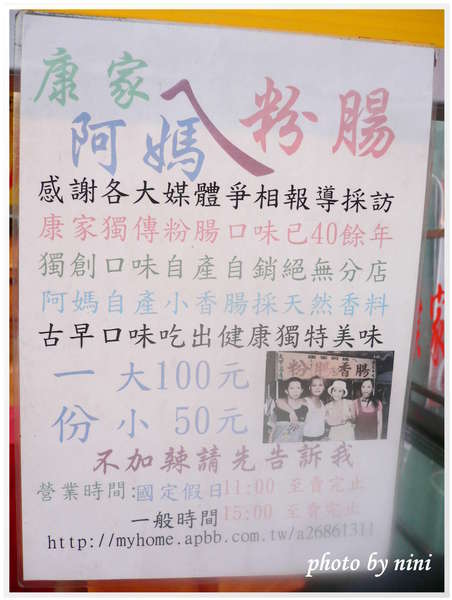 康家
阿媽ㄟ粉腸
感謝各大媒體爭相報導採訪
康家獨傳粉腸口味已40餘年
獨創口味自產自銷絕無分店
阿媽自產小香腸採天然香料
古早口味吃出健康獨特美味
一 大100元
份 小 50元
粉腸 香腸
不加辣請先告訴我
營業時間:國定假日11:00 至賣完止
一般時間15:00 至賣完止
http://myhome.apbb.com.tw/a26861311
photo by nini